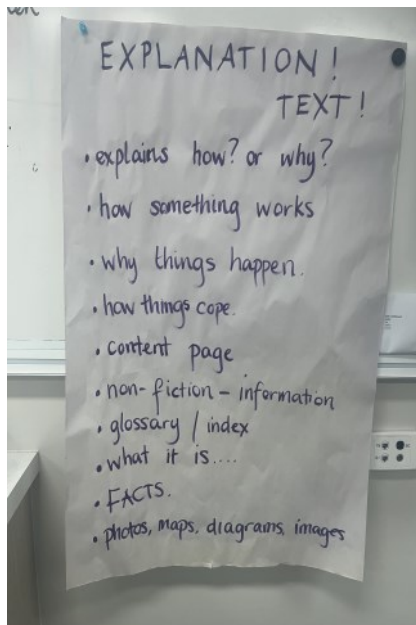 EXPLANATION!
TEXT!
• explains how? or why?
• how something works
• why things happen.
• how things cope.
• content page
• non-fiction - information
• glossary / index
• what it is....
• FACTS.
• photos, maps, diagrams, images